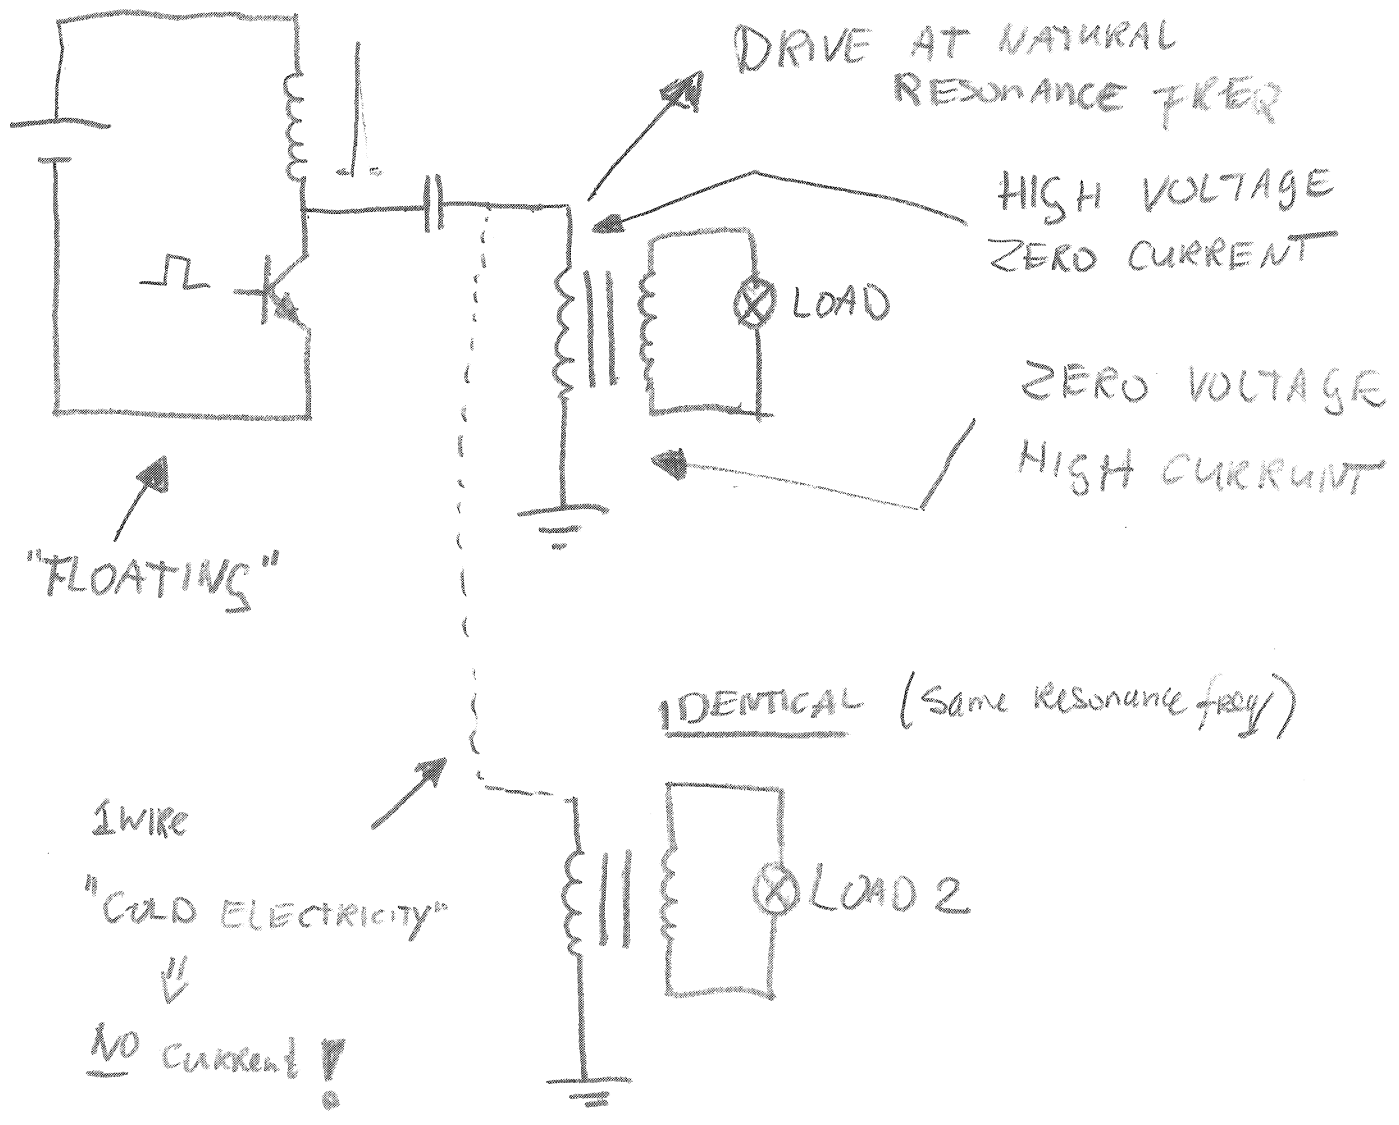 DRIVE AT NATURAL
RESONANCE FREQ
HIGH VOLTAGE
ZERO CURRENT
LOAD
ZERO VOLTAGE
HIGH CURRUNT
"FLOATING"
IDENTICAL (Same Resonance freq)
1 WIRe
"COLD ELECTRICITY"
LOAD 2
NO CuRRent !